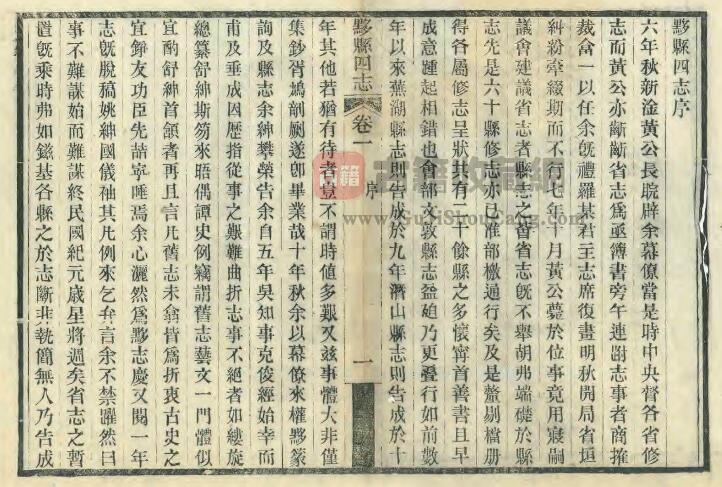 黟縣四志序
六年秋新淦黃公長皖辟余幕僚當是時中央督各省修
志而黃公亦斷斷省志爲亟簿書旁午連跗志事者商搉
裁會一以任余旣禮羅某君主志席復晝明秋開局省垣
糾紛牽綴期而不行七年十月黃公薨於位事竟用寢嗣
議會建議省志者縣志之督省志旣不舉胡弗端礎於縣
志先是六十縣修志亦已准部檄通行矣及是釐剔檔册
得各屬修志呈狀共有二十餘縣之多懷甯首善書且早
成意踵起相錯也會部文敦縣志益廹乃更疊行如前數
年以來蕪湖縣志則告成於九年潛山縣志則告成於十
黟縣四志
卷一
序
一
年其他若猶有待者豈不謂時值多艱又兹事體大非僅
集鈔胥鳩剞劂遂卽畢業哉十年秋余以幕僚來權黟篆
詢及縣志余紳攀榮告余自五年吳知事克俊經始幸而
甫及垂成因歷指從事之艱難曲折志事不絕者如縷旋
總纂舒紳斯笏來晤偶譚史例竊謂舊志藝文一門體似
宜酌舒紳首頷者再且言凡舊志未翕皆爲折衷古史之
宜錚友功臣先喆寧唾焉余心灑然爲黟志慶又閱一年
志旣脫稿姚紳國儀袖其凡例來乞弁言余不禁躍然曰
事不難謀始而難謀終民國紀元歲星將週矣省志之暫
置旣乘時弗如鎡基各縣之於志斷非執簡無人乃告成
古籍收藏網
www.GuJiShouCang.com
古籍